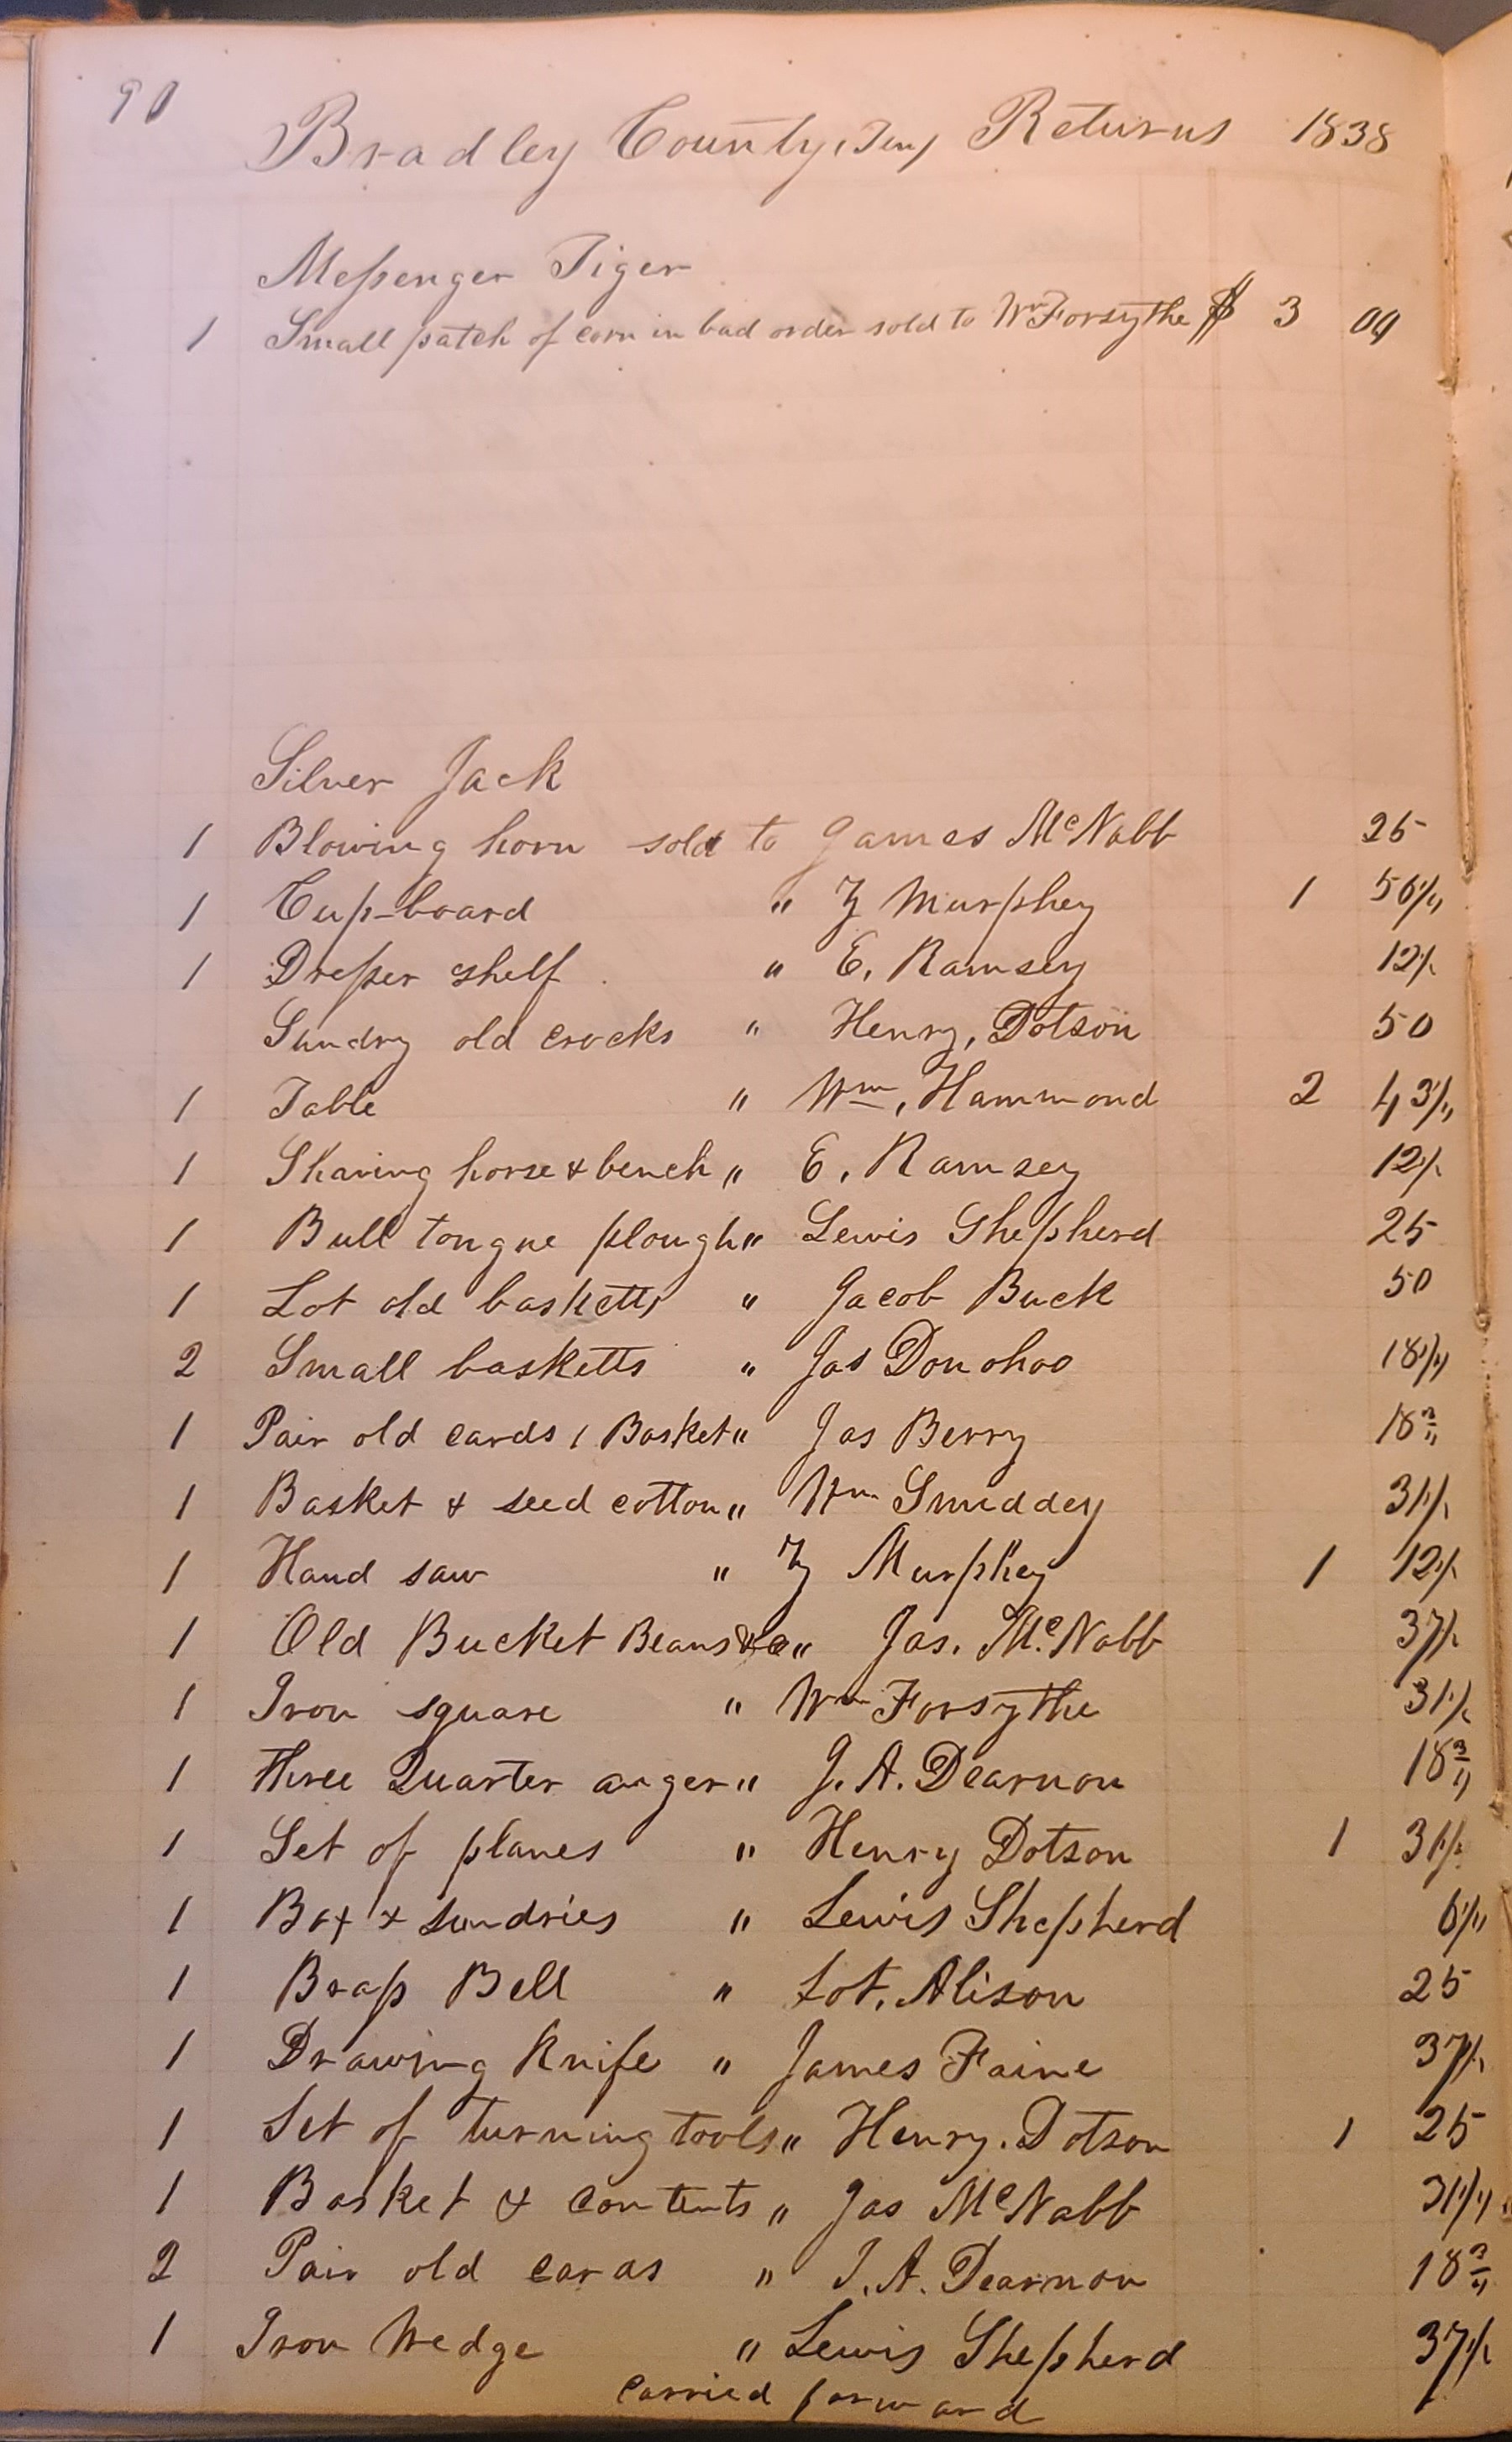 90
Bradley County, Ten, Returns 1838
Messenger Tiger
1 Small patch of corn in bad order sold to Wm Forsythe $ 3 00
Silver Jack
1 Blowing horn sold to James McNabb 25
1 Cup-board " Z Murphey 1 56 1/4
1 Dresser shelf " E. Ramsey 12 1/2
Sundry old crocks " Henry, Dotson 50
1 Table " Wm, Hammond 2 43 3/4
1 Shaving horse & bench " E. Ramsey 12 1/2
1 Bull tongue plough " Lewis Shepherd 25
1 Lot old basketts " Jacob Buck 50
2 Small basketts " Jas Donohoo 18 3/4
1 Pair old cards 1 Basket " Jas Berry 18 3/4
1 Basket & seed cotton " Wm Smiddey 31 1/4
1 Hand saw " Z Murphey 1 12 1/2
1 Old Bucket Beans &c " Jas. McNabb 37 1/2
1 Iron square " Wm Forsythe 31 1/4
1 three Quarter auger " J. A. Dearmon 18 3/4
1 Set of planes " Henry Dotson 1 31 1/4
1 Box & sundries " Lewis Shepherd 6 1/4
1 Brass Bell " Lot. Alison 25
1 Drawing Knife " James Faine 37 1/2
1 Set of turning tools " Henry. Dotson 1 25
1 Basket & contents " Jas McNabb 31 1/4
2 Pair old caras " J. A. Dearmon 18 3/4
1 Iron Wedge " Lewis Shepherd 37 1/2
carried forward